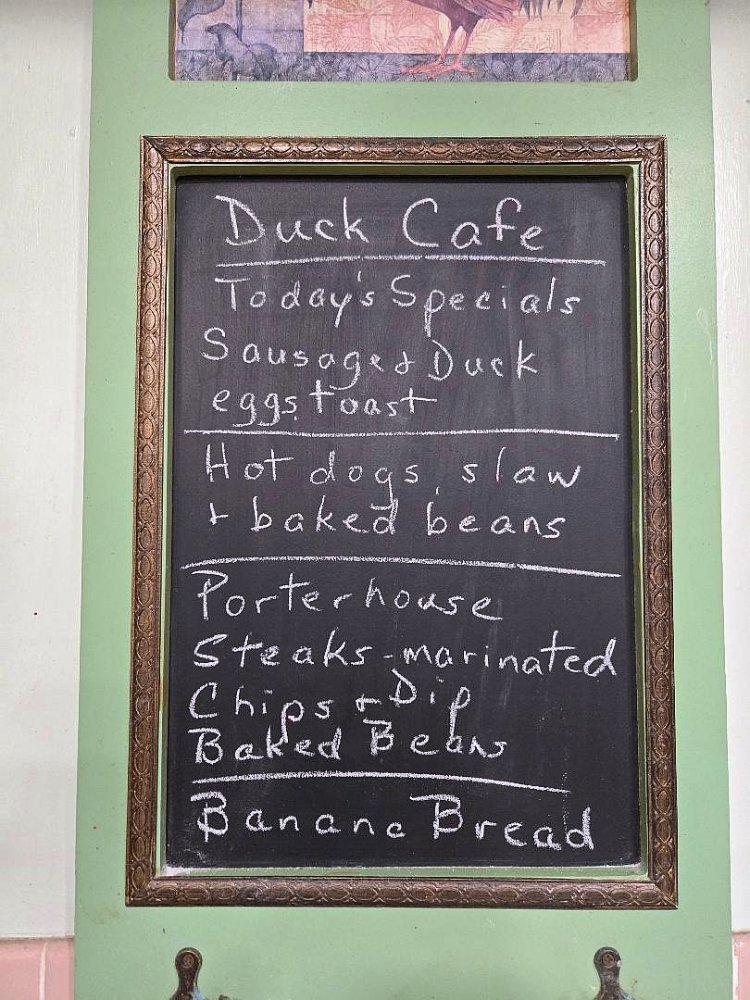 Duck Cafe
Today's Specials
Sausage & Duck
eggs, toast
Hot dogs, slaw
& baked beans
Porterhouse
Steaks - marinated
Chips & Dip
Baked Beans
Banana Bread